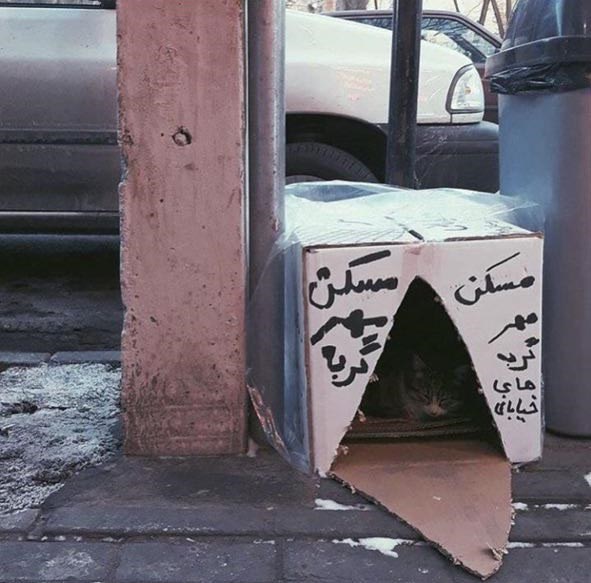 مسکن
مهر
گربه
مسکن
مهر
گربه
های
خیابانی